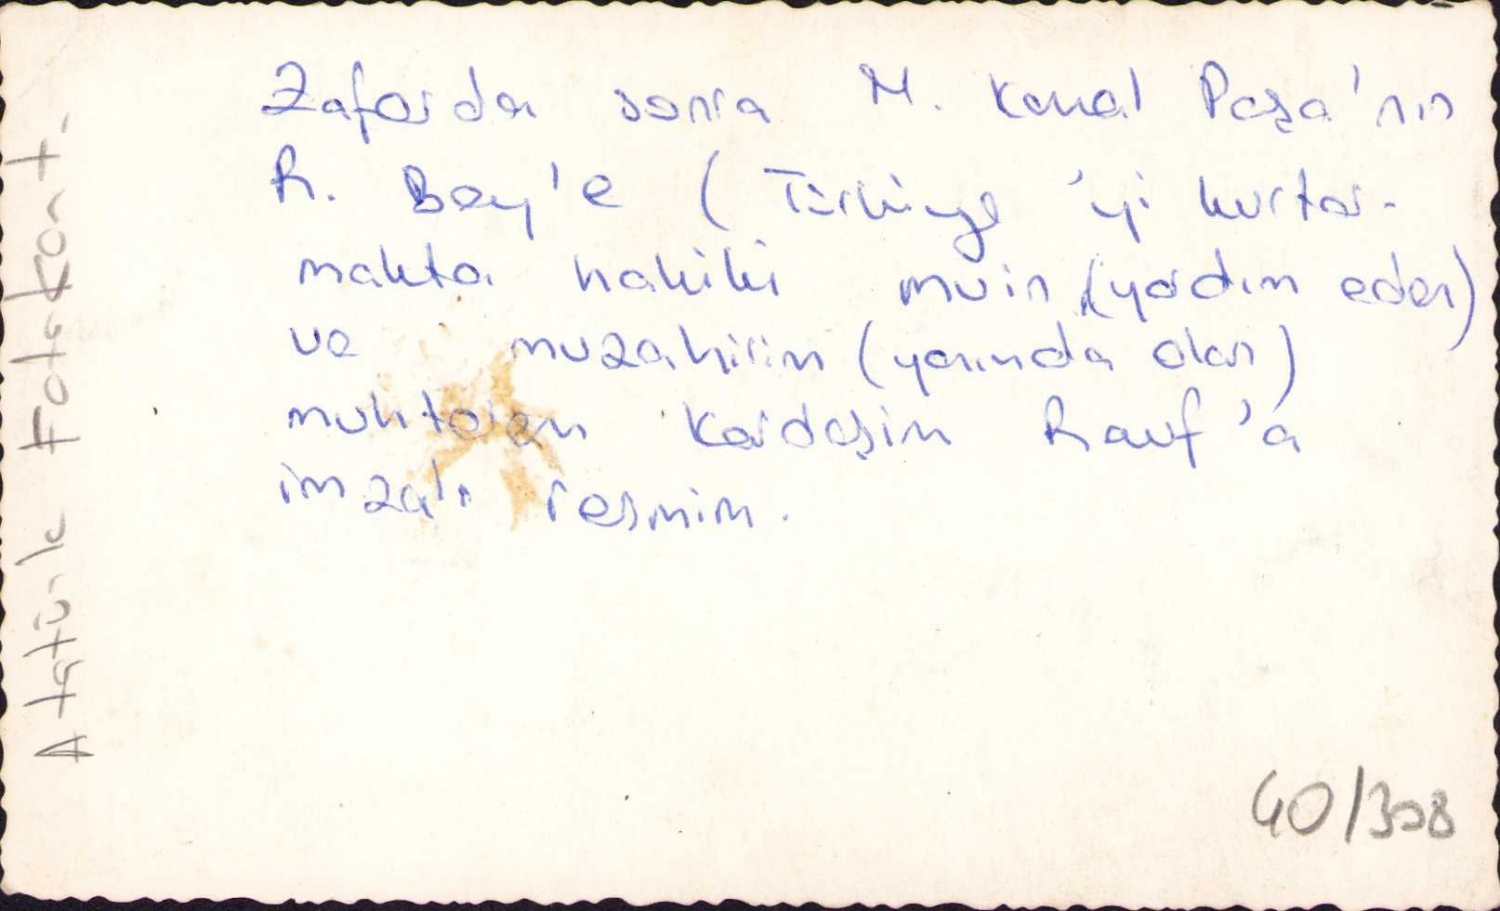 Zaferden sonra M. Kemal Paşa'nın
R. Bey'e ( Türkiye 'yi kurtar-
makta hakiki muin (yardım eden)
ve muzahirim (yanında olan)
muhterem Kardeşim Rauf'a
imzalı resmim.
Atatürk Fotokont.
40/308